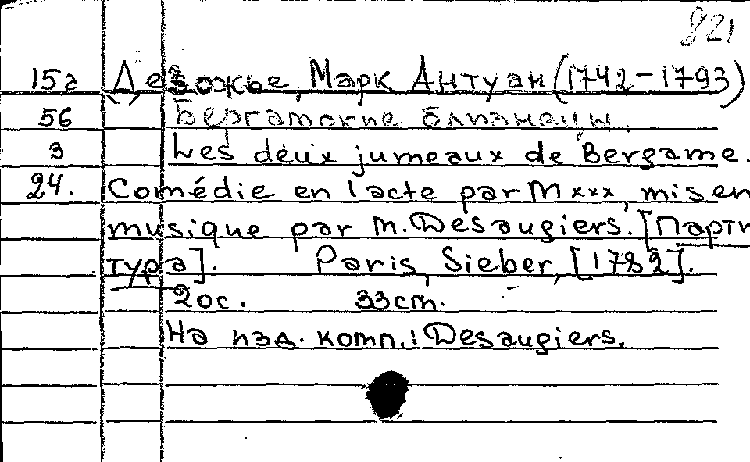 821
15а Дезожье, Марк Антуан (1742-1793)
56 Бергамские близнецы.
3 Les deux jumeaux de Bergame.
24. Comédie en 1 acte par M xxx, mis en
musique par M. Desaugiers. [Парти
тура]. Paris, Sieber, [1782].
20с. 33cm.
На изд. комп.: Desaugiers.